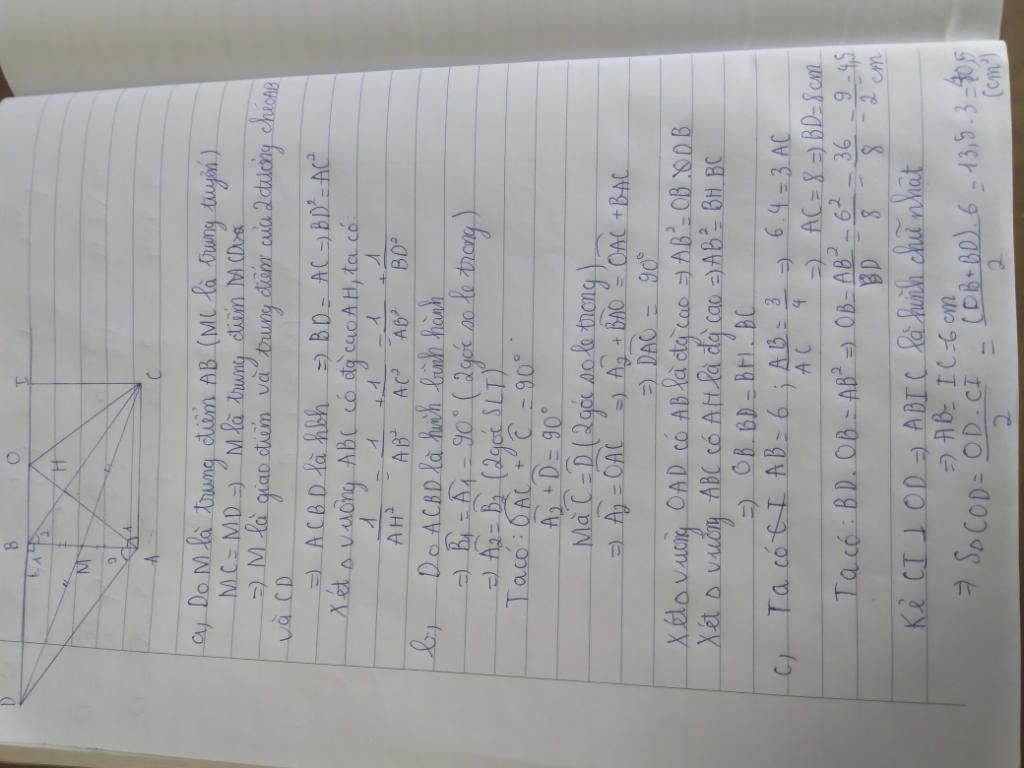 D B O I
1 2
H
M
2 1
A C
a, Do M là trung điểm AB (MC là trung tuyến)
MC = MD => M là trung điểm MCD
=> M là giao điểm và trung điểm của 2 đường chéo AB
và CD
=> ACBD là hbh => BD = AC => BD² = AC²
Xét △ vuông ABC có đg cao AH, ta có:
1/AH² = 1/AB² + 1/AC² = 1/AB² + 1/BD²
b, Do ACBD là hình bình hành
=> B̂₁ = Â₁ = 90° (2 góc so le trong)
=> Â₂ = B̂₂ (2 góc SLT)
Ta có: OAC + Ĉ = 90°
Â₂ + D̂ = 90°
Mà Ĉ = D̂ (2 góc so le trong)
=> Â₂ = OAC => Â₂ + BAO = OAC + BAC
=> DAO = 90°
Xét △ vuông OAD có AB là đg cao => AB² = OB.DB
Xét △ vuông ABC có AH là đg cao => AB² = BH.BC
=> OB.BD = BH.BC
c, Ta có AB = 6 ; AB/AC = 3/4 => 6.4 = 3AC
=> AC = 8 => BD = 8cm
Ta có: BD.OB = AB² => OB = AB²/BD = 6²/8 = 36/8 = 9/2 = 4,5 cm
Kẻ CI ⊥ OD => ABIC là hình chữ nhật
=> AB = IC = 6cm
=> S△COD = OD.CI/2 = (OB+BD).6/2 = 13,5.3 = 40,5 (cm²)